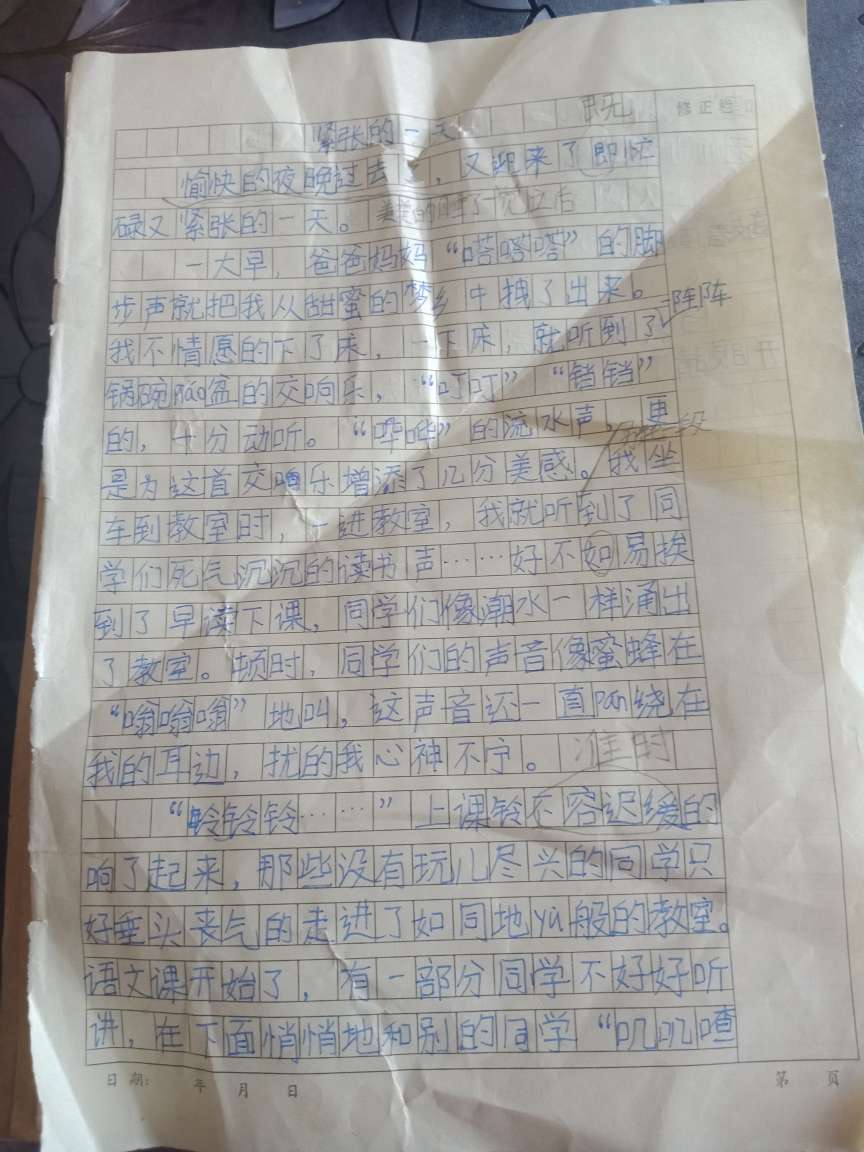 既
修正栏
紧张的一天
愉快的夜晚过去了，又迎来了即忙
碌又紧张的一天。美美的睡了一觉之后
一大早，爸爸妈妈“嗒嗒嗒”的脚
步声就把我从甜蜜的梦乡中拽了出来。
阵阵
我不情愿的下了床，一下床，就听到了
锅碗páo盆的交响乐，“叮叮”“铛铛”
的，十分动听。“哗哗”的流水声，更
段
是为这首交响乐增添了几分美感。我坐
车到教室时，一进教室，我就听到了同
学们死气沉沉的读书声……好不如易挨
到了早读下课，同学们像潮水一样涌出
了教室。顿时，同学们的声音像蜜蜂在
“嗡嗡嗡”地叫，这声音还一直pán绕在
我的耳边，扰的我心神不宁。准时
“铃铃铃……”上课铃不容迟缓的
响了起来，那些没有玩儿尽兴的同学只
好垂头丧气的走进了如同地yù般的教室。
语文课开始了，有一部分同学不好好听
讲，在下面悄悄地和别的同学“叽叽喳
日期： 年 月 日
第 页